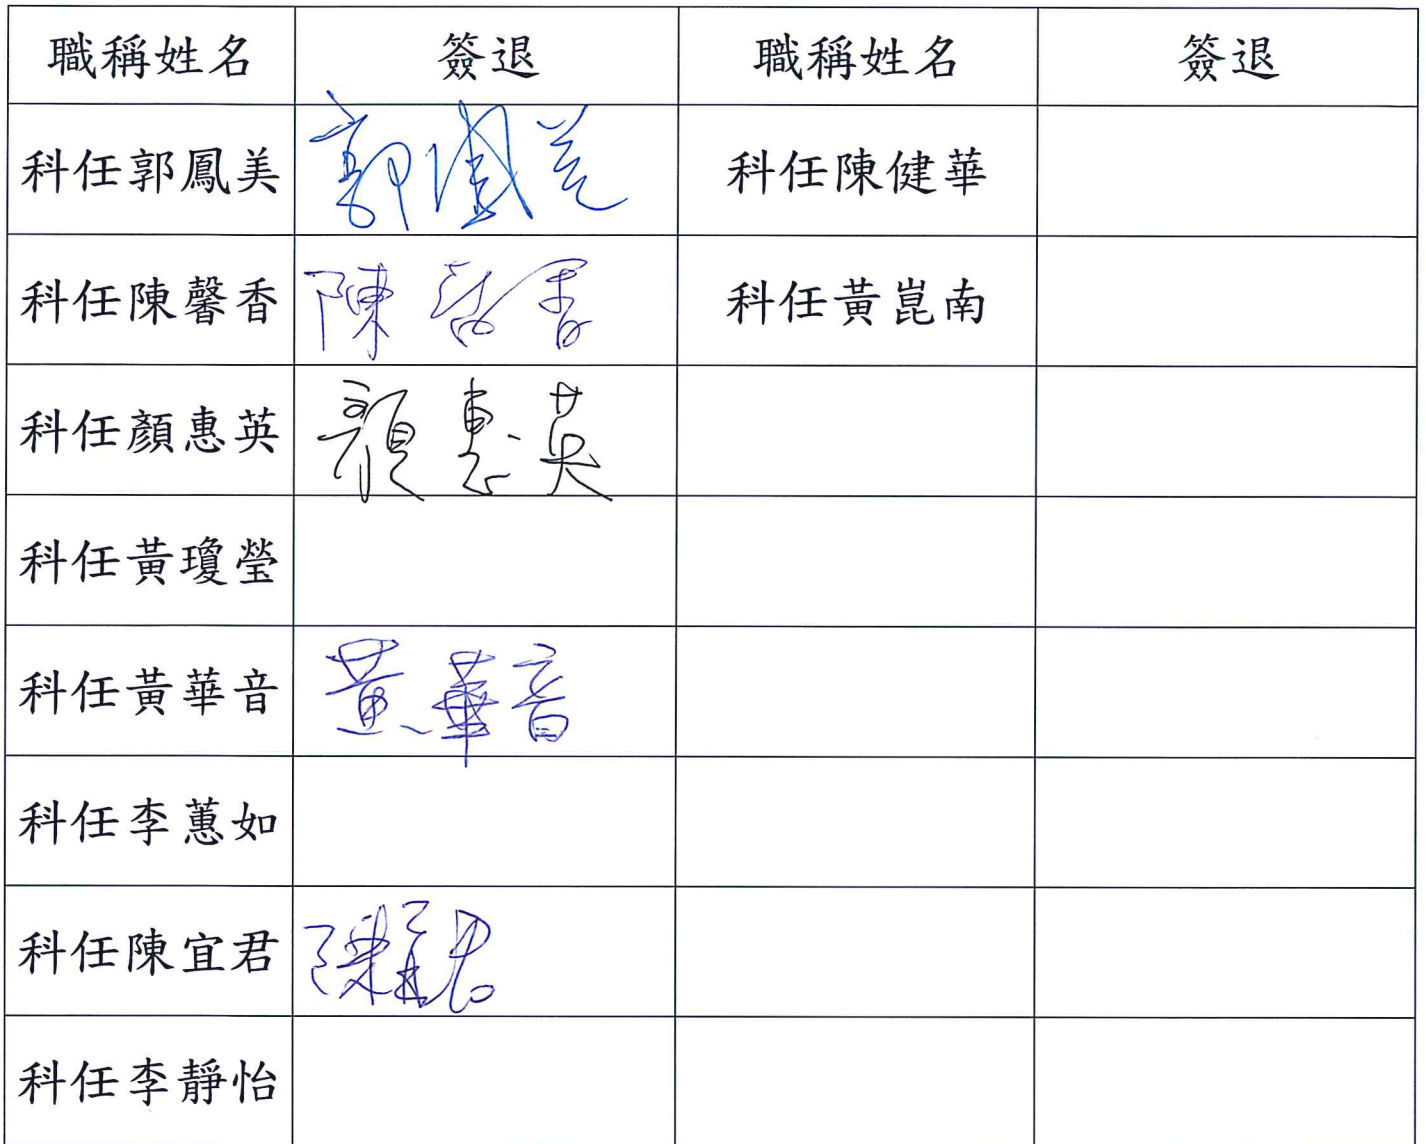 職稱姓名 簽退 職稱姓名 簽退
科任郭鳳美 郭鳳美 科任陳健華
科任陳馨香 陳馨香 科任黃崑南
科任顏惠英 顏惠英
科任黃瓊瑩
科任黃華音 黃華音
科任李蕙如
科任陳宜君 陳宜君
科任李靜怡